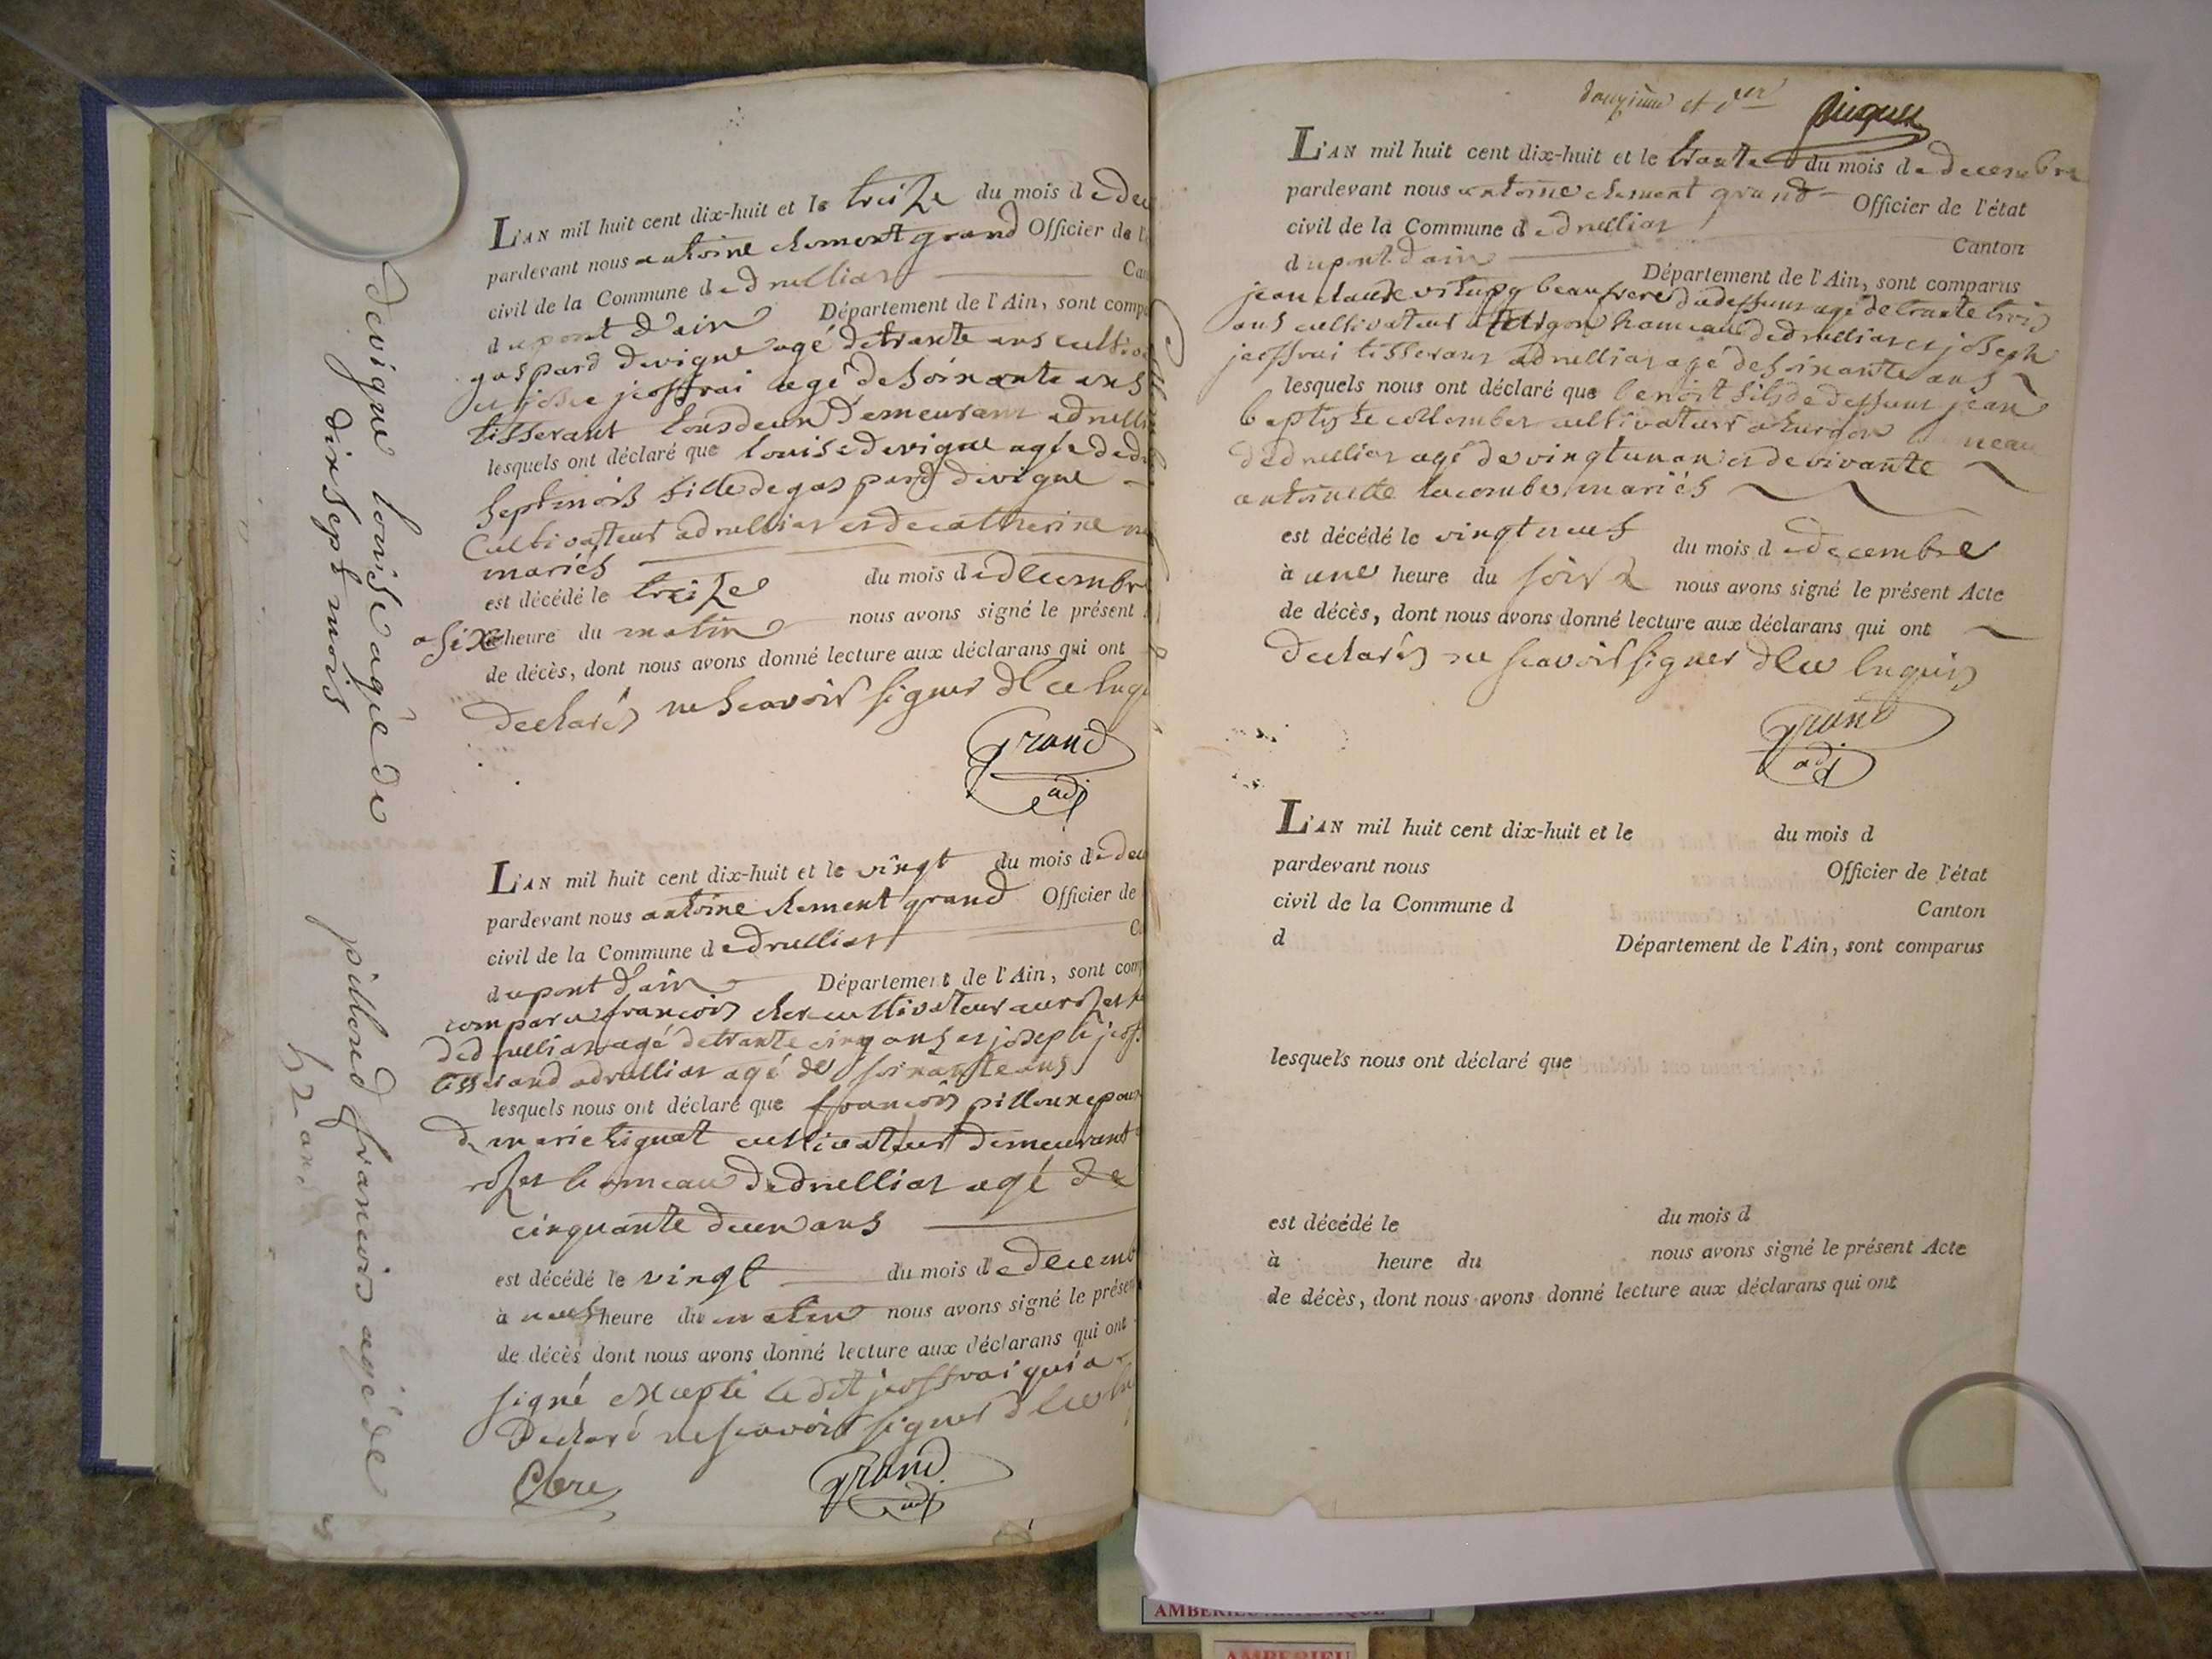 devigne louise agée de
dix sept mois
L'AN mil huit cent dix-huit et le treize du mois de dec
pardevant nous antoine clement grand Officier de l'
civil de la Commune de druillias Can
du pont d'ain Département de l'Ain, sont comp
gaspard devigne agé de trante ans cultiv
et josee jeoffrai agé de soixante ans
tisserant tous deux demeurant a druilli
lesquels ont déclaré que louise devigne agée de di
sept mois fille de gaspard devigne
Cultivateur a druillias et de catherine
mariés
est décédé le treize du mois de decembr
a six heure du matin nous avons signé le présent
de décès, dont nous avons donné lecture aux déclarans qui ont
declarés ne scavoir signer de ce enqu
grand
adj
pilloud francois agé de
52 ans
L'AN mil huit cent dix-huit et le vingt du mois de dec
pardevant nous antoine clement grand Officier de
civil de la Commune de druillias C
du pont d'ain Département de l'Ain, sont com
comparu francois cler cultivateur au rozet
de druillias agé de trante cinq ans et joseph jeoff
tisserand a druillias agé de soixante ans
lesquels nous ont déclaré que francois pilloux epoux
de marie tiguat cultivateur demeurant
rozet hameau de druillias agé de
cinquante deux ans
est décédé le vingt du mois de decemb
à neuf heure du matin nous avons signé le présen
de décès dont nous avons donné lecture aux déclarans qui ont
signé excepté le dit jeoffrai qui a
declaré ne scavoir signer de ce
Clerc grand
adj
douzieme et der
L'AN mil huit cent dix-huit et le trante du mois de decembre
pardevant nous antoine clement grand Officier de l'état
civil de la Commune de druillias Canton
du pont d'ain Département de l'Ain, sont comparus
jean claude beaufrere du deffunt agé de trante trois
ans cultivateur a hameau de druillias et joseph
jeoffrai tisserant a druillias agé de soixante ans
lesquels nous ont déclaré que benoit fils de deffunt jean
baptiste collomber cultivateur a hameau
de druillias agé de vingt un an et de vivante
antoinette lacombe mariés
est décédé le vingt neuf du mois de decembre
à une heure du soir nous avons signé le présent Acte
de décès, dont nous avons donné lecture aux déclarans qui ont
declarés ne scavoir signer de ce enquis
grand
adj
L'AN mil huit cent dix-huit et le du mois d
pardevant nous Officier de l'état
civil de la Commune d Canton
d Département de l'Ain, sont comparus
lesquels nous ont déclaré que
est décédé le du mois d
à heure du nous avons signé le présent Acte
de décès, dont nous avons donné lecture aux déclarans qui ont